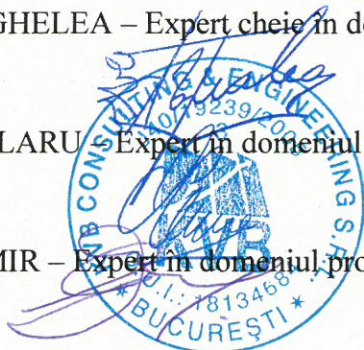 GHELEA – Expert cheie în do
LARU – Expert în domeniul
MIR – Expert în domeniul pro
AVB CONSULTING & ENGINEERING S.R.L.
J40/19239/200
AVB
C.U.I.: 1813468
* BUCUREŞTI *